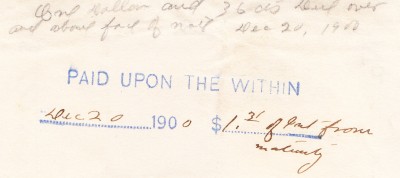 One Dollar and 36 cts Due over
and above face of note Dec 20, 1900
PAID UPON THE WITHIN
Dec 20 1900 $1.31 of Int from
maturity